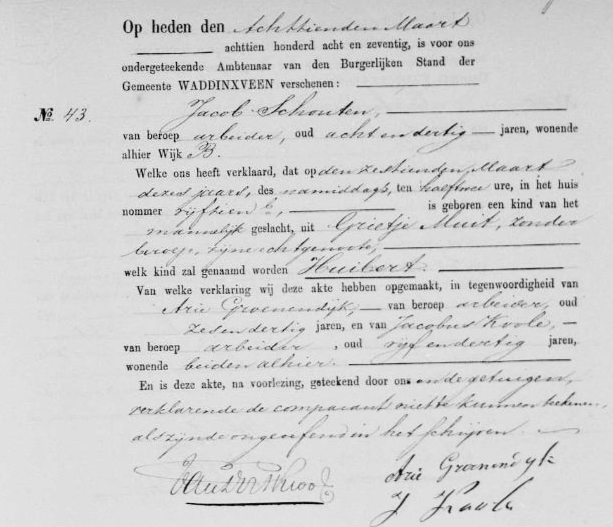 Op heden den Achttienden Maart
achttien honderd acht en zeventig, is voor ons
ondergeteekende Ambtenaar van den Burgerlijken Stand der
Gemeente WADDINXVEEN verschenen:
No. 43.
Jacob Schouten,
van beroep arbeider, oud acht en dertig jaren, wonende
alhier Wijk B.
Welke ons heeft verklaard, dat op den zestienden Maart
dezes jaars, des namiddags, ten half twee ure, in het huis
nommer vijftien is geboren een kind van het
mannelijk geslacht, uit Grietje Muit, zonder
beroep, zijne echtgenoote,
welk kind zal genaamd worden Huibert
Van welke verklaring wij deze akte hebben opgemaakt, in tegenwoordigheid van
Arie Groenendijk, van beroep arbeider, oud
zes en dertig jaren, en van Jacobus Koole,
van beroep arbeider, oud vijf en dertig jaren,
wonende beiden alhier.
En is deze akte, na voorlezing, geteekend door ons en de getuigen,
verklarende de comparant niet te kunnen teekenen,
als zijnde ongeoefend in het schrijven
Arie Groenendijk
J Koole